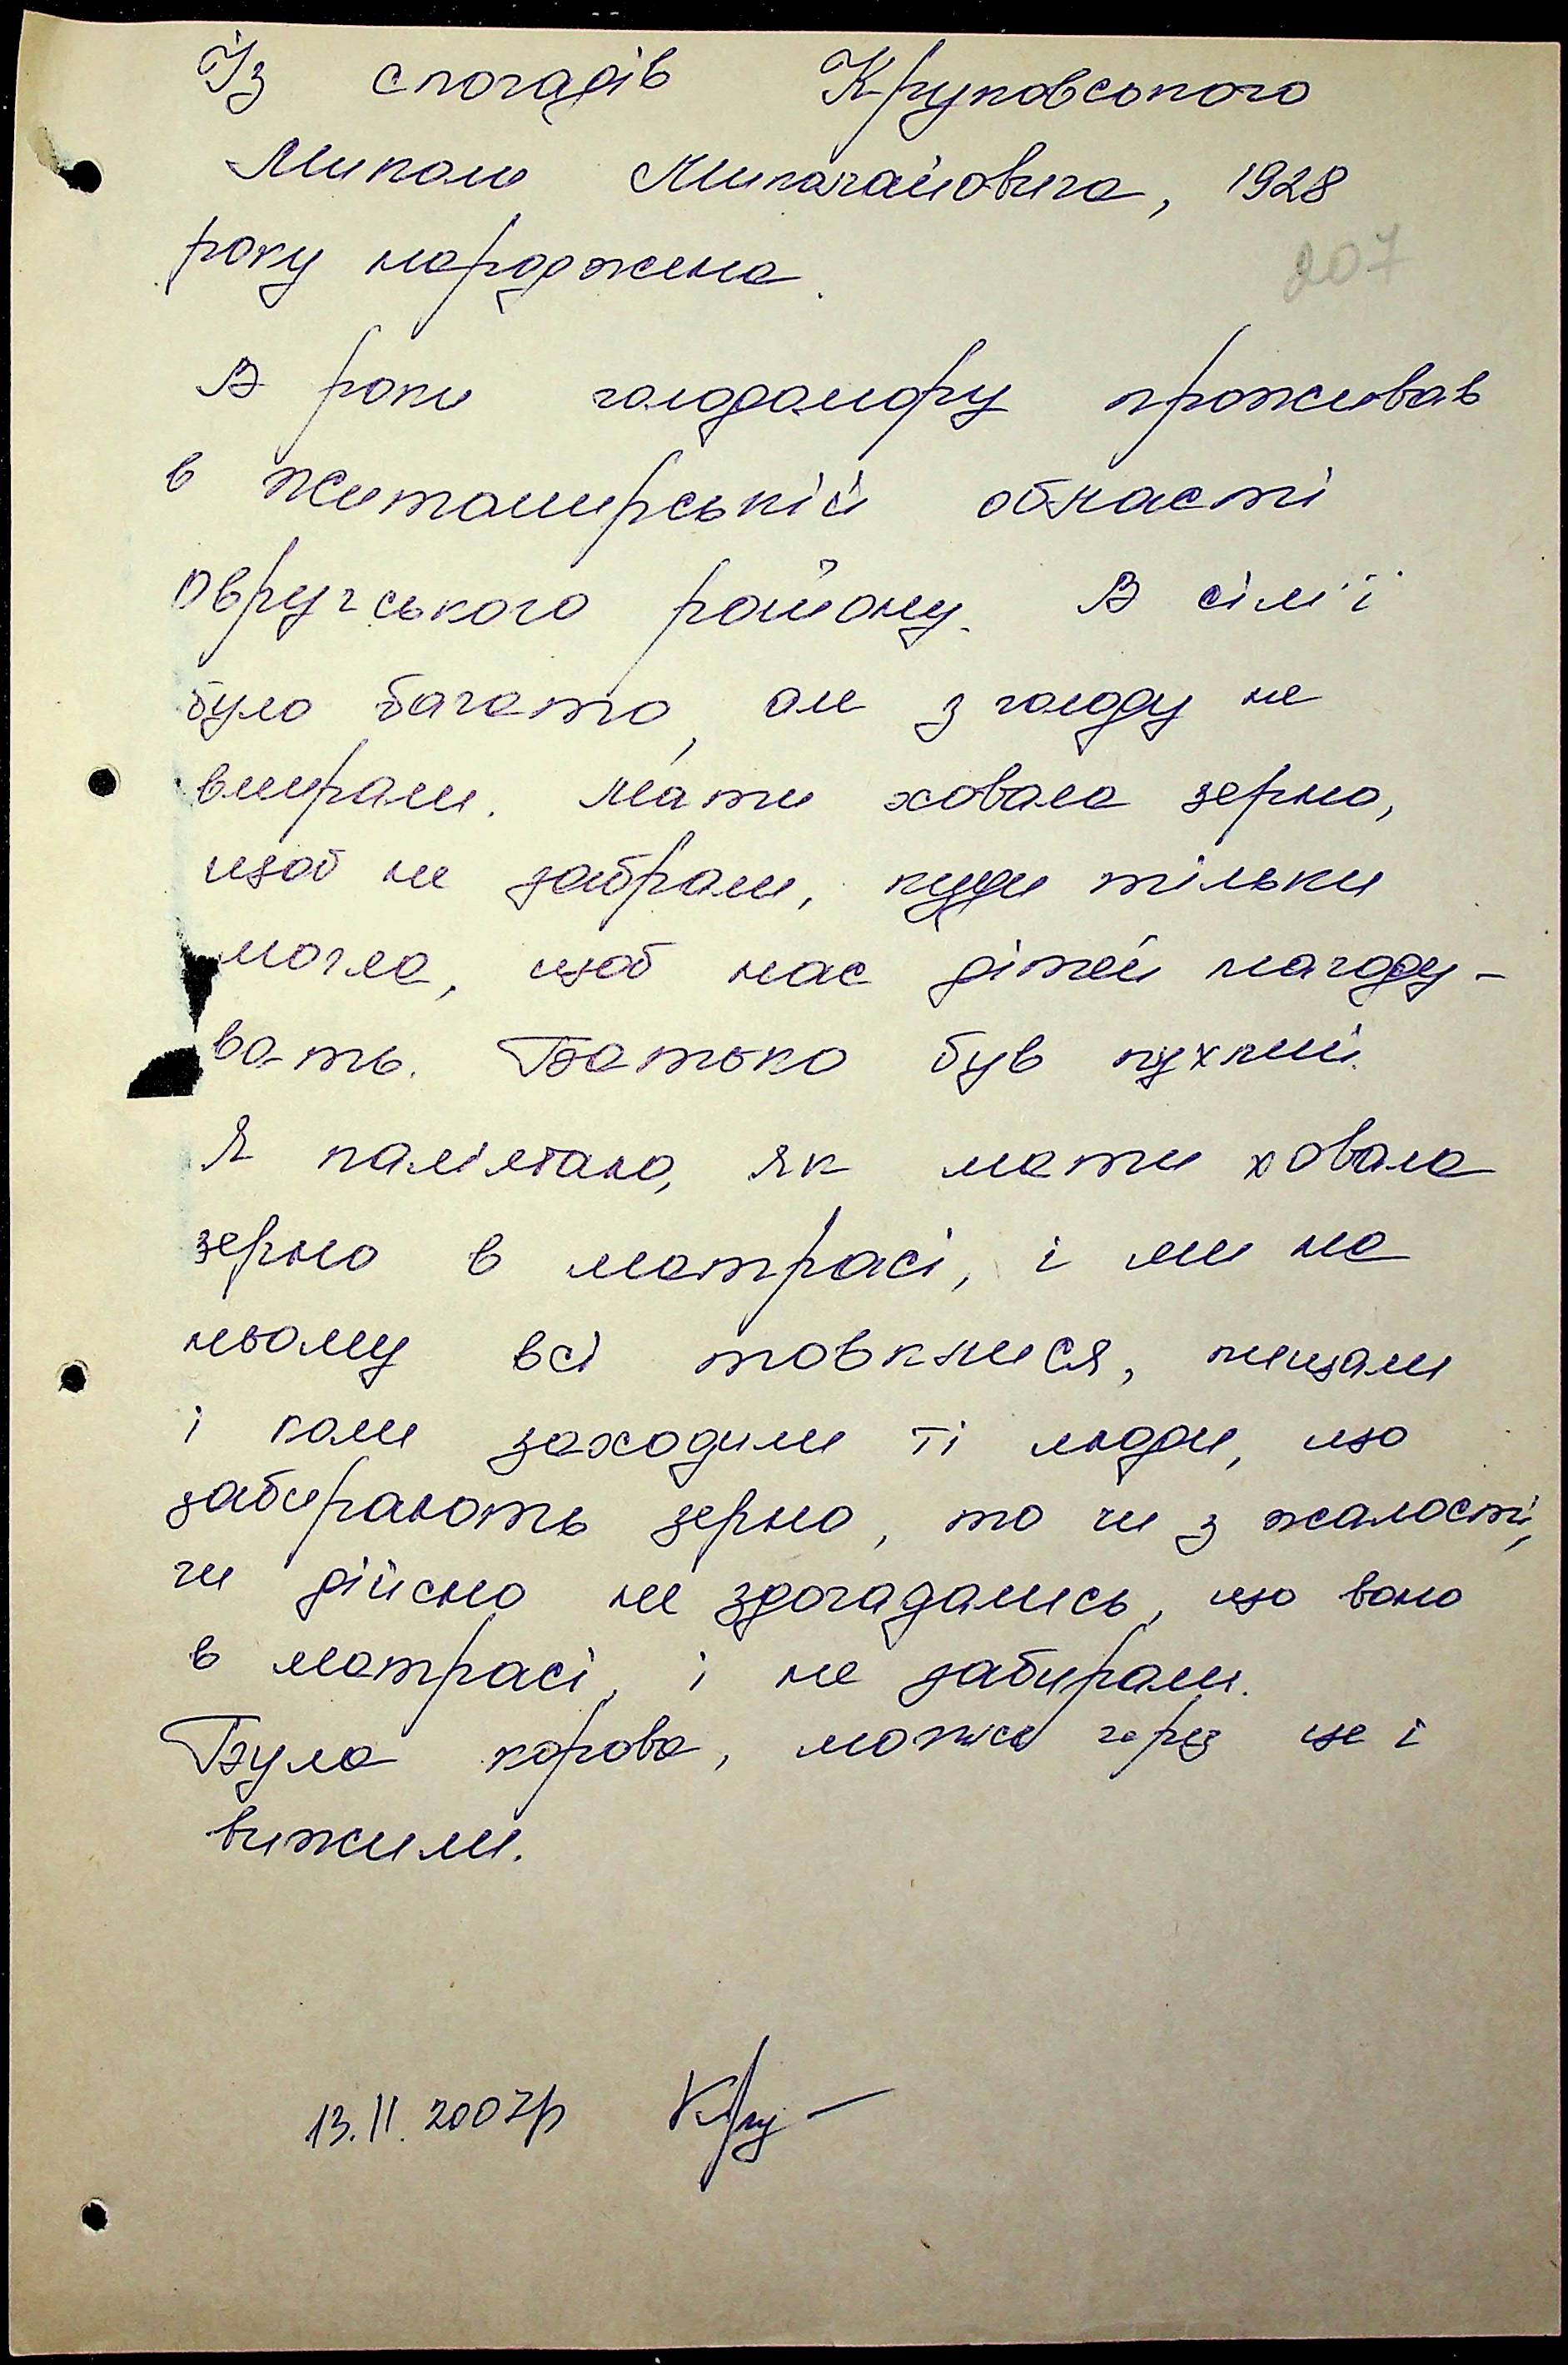 Із спогадів Круковського
Миколи Миколайовича, 1928
року народження.
207
В роки голодомору проживав
в Житомирській області
Овручського району. В сім'ї
було багато, але з голоду не
вмирали. Мати ховала зерно,
щоб не забрали, куди тільки
могла, щоб нас дітей нагоду-
вать. Батько був пухлий.
Я пам'ятаю, як мати ховала
зерно в матрасі, і ми на
ньому всі товклися, пищали
і коли заходили ті люди, що
забирають зерно, то чи з жалості,
чи дійсно не здогадались, що воно
в матрасі, і не забирали.
Була корова, може через це і
вижили.
13.11.2007р Кру